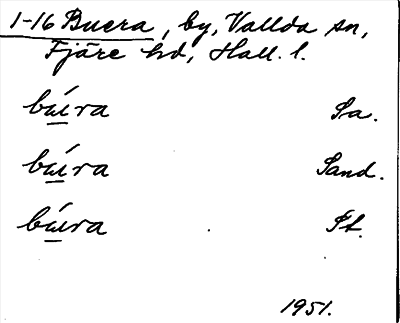 1-16 Buera, by, Vallda sn,
Fjäre hd, Hall. l.
búra Sa.
búra Sand.
búra St.
1951.